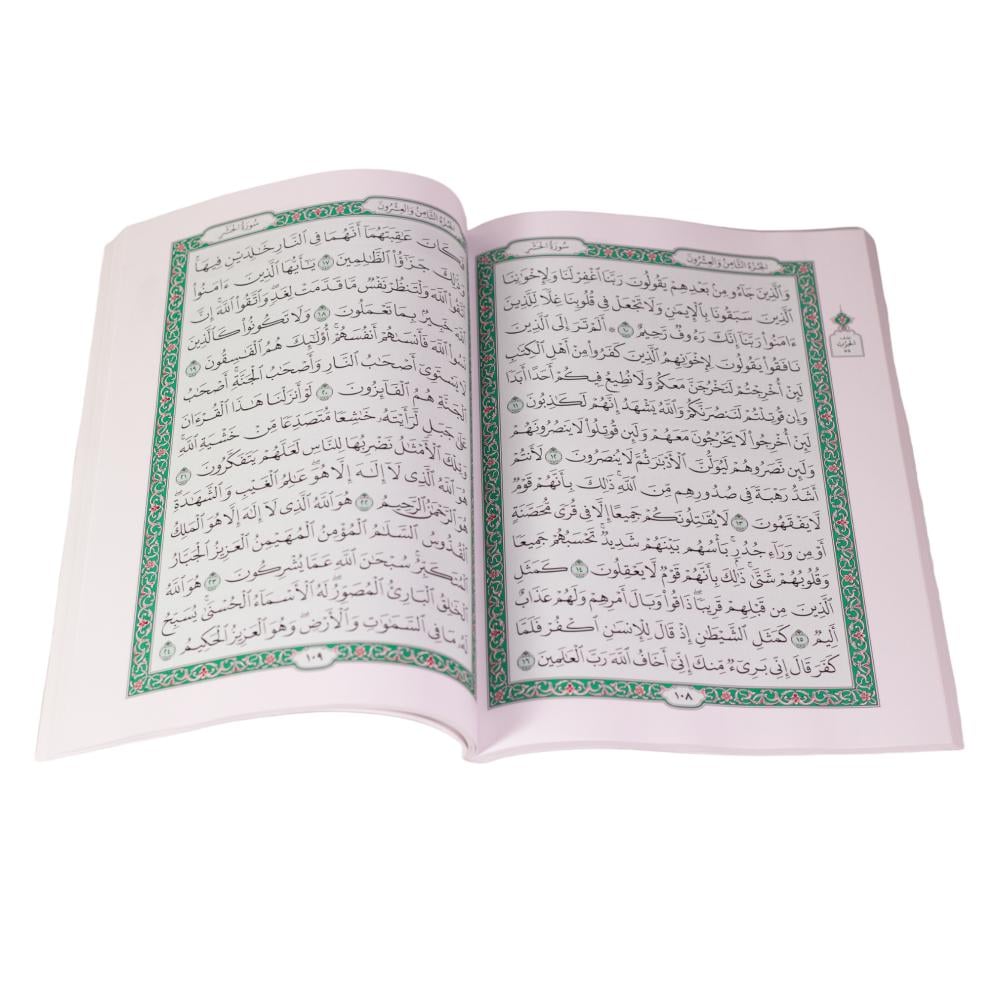 سُورَةُ الحَشْرِ
الجُزْءُ الثَّامِنُ وَالعِشْرُونَ
وَٱلَّذِينَ جَآءُو مِنۢ بَعْدِهِمْ يَقُولُونَ رَبَّنَا ٱغْفِرْ لَنَا وَلِإِخْوَٰنِنَا
ٱلَّذِينَ سَبَقُونَا بِٱلْإِيمَٰنِ وَلَا تَجْعَلْ فِى قُلُوبِنَا غِلًّا لِّلَّذِينَ
ءَامَنُوا۟ رَبَّنَآ إِنَّكَ رَءُوفٌ رَّحِيمٌ ١٠ ۞ أَلَمْ تَرَ إِلَى ٱلَّذِينَ
نَافَقُوا۟ يَقُولُونَ لِإِخْوَٰنِهِمُ ٱلَّذِينَ كَفَرُوا۟ مِنْ أَهْلِ ٱلْكِتَٰبِ
لَئِنْ أُخْرِجْتُمْ لَنَخْرُجَنَّ مَعَكُمْ وَلَا نُطِيعُ فِيكُمْ أَحَدًا أَبَدًا
وَإِن قُوتِلْتُمْ لَنَنصُرَنَّكُمْ وَٱللَّهُ يَشْهَدُ إِنَّهُمْ لَكَٰذِبُونَ ١١
لَئِنْ أُخْرِجُوا۟ لَا يَخْرُجُونَ مَعَهُمْ وَلَئِن قُوتِلُوا۟ لَا يَنصُرُونَهُمْ
وَلَئِن نَّصَرُوهُمْ لَيُوَلُّنَّ ٱلْأَدْبَٰرَ ثُمَّ لَا يُنصَرُونَ ١٢ لَأَنتُمْ
أَشَدُّ رَهْبَةً فِى صُدُورِهِم مِّنَ ٱللَّهِ ۚ ذَٰلِكَ بِأَنَّهُمْ قَوْمٌ
لَّا يَفْقَهُونَ ١٣ لَا يُقَٰتِلُونَكُمْ جَمِيعًا إِلَّا فِى قُرًى مُّحَصَّنَةٍ
أَوْ مِن وَرَآءِ جُدُرٍۭ ۚ بَأْسُهُم بَيْنَهُمْ شَدِيدٌ ۚ تَحْسَبُهُمْ جَمِيعًا
وَقُلُوبُهُمْ شَتَّىٰ ۚ ذَٰلِكَ بِأَنَّهُمْ قَوْمٌ لَّا يَعْقِلُونَ ١٤ كَمَثَلِ
ٱلَّذِينَ مِن قَبْلِهِمْ قَرِيبًا ۖ ذَاقُوا۟ وَبَالَ أَمْرِهِمْ وَلَهُمْ عَذَابٌ
أَلِيمٌ ١٥ كَمَثَلِ ٱلشَّيْطَٰنِ إِذْ قَالَ لِلْإِنسَٰنِ ٱكْفُرْ فَلَمَّا
كَفَرَ قَالَ إِنِّى بَرِىٓءٌ مِّنكَ إِنِّىٓ أَخَافُ ٱللَّهَ رَبَّ ٱلْعَٰلَمِينَ ١٦
١٠٨
الحِزْب
٥٥
سُورَةُ الحَشْرِ
الجُزْءُ الثَّامِنُ وَالعِشْرُونَ
كَانَ عَٰقِبَتَهُمَآ أَنَّهُمَا فِى ٱلنَّارِ خَٰلِدَيْنِ فِيهَا ۚ
وَذَٰلِكَ جَزَٰٓؤُا۟ ٱلظَّٰلِمِينَ ١٧ يَٰٓأَيُّهَا ٱلَّذِينَ ءَامَنُوا۟
ٱتَّقُوا۟ ٱللَّهَ وَلْتَنظُرْ نَفْسٌ مَّا قَدَّمَتْ لِغَدٍ ۖ وَٱتَّقُوا۟ ٱللَّهَ ۚ إِنَّ
ٱللَّهَ خَبِيرٌۢ بِمَا تَعْمَلُونَ ١٨ وَلَا تَكُونُوا۟ كَٱلَّذِينَ
نَسُوا۟ ٱللَّهَ فَأَنسَىٰهُمْ أَنفُسَهُمْ ۚ أُو۟لَٰٓئِكَ هُمُ ٱلْفَٰسِقُونَ ١٩
لَا يَسْتَوِىٓ أَصْحَٰبُ ٱلنَّارِ وَأَصْحَٰبُ ٱلْجَنَّةِ ۚ أَصْحَٰبُ
ٱلْجَنَّةِ هُمُ ٱلْفَآئِزُونَ ٢٠ لَوْ أَنزَلْنَا هَٰذَا ٱلْقُرْءَانَ
عَلَىٰ جَبَلٍ لَّرَأَيْتَهُۥ خَٰشِعًا مُّتَصَدِّعًا مِّنْ خَشْيَةِ ٱللَّهِ ۚ
وَتِلْكَ ٱلْأَمْثَٰلُ نَضْرِبُهَا لِلنَّاسِ لَعَلَّهُمْ يَتَفَكَّرُونَ ٢١
هُوَ ٱللَّهُ ٱلَّذِى لَآ إِلَٰهَ إِلَّا هُوَ ۖ عَٰلِمُ ٱلْغَيْبِ وَٱلشَّهَٰدَةِ ۖ
هُوَ ٱلرَّحْمَٰنُ ٱلرَّحِيمُ ٢٢ هُوَ ٱللَّهُ ٱلَّذِى لَآ إِلَٰهَ إِلَّا هُوَ ٱلْمَلِكُ
ٱلْقُدُّوسُ ٱلسَّلَٰمُ ٱلْمُؤْمِنُ ٱلْمُهَيْمِنُ ٱلْعَزِيزُ ٱلْجَبَّارُ
ٱلْمُتَكَبِّرُ ۚ سُبْحَٰنَ ٱللَّهِ عَمَّا يُشْرِكُونَ ٢٣ هُوَ ٱللَّهُ
ٱلْخَٰلِقُ ٱلْبَارِئُ ٱلْمُصَوِّرُ ۖ لَهُ ٱلْأَسْمَآءُ ٱلْحُسْنَىٰ ۚ يُسَبِّحُ
لَهُۥ مَا فِى ٱلسَّمَٰوَٰتِ وَٱلْأَرْضِ ۖ وَهُوَ ٱلْعَزِيزُ ٱلْحَكِيمُ ٢٤
١٠٩